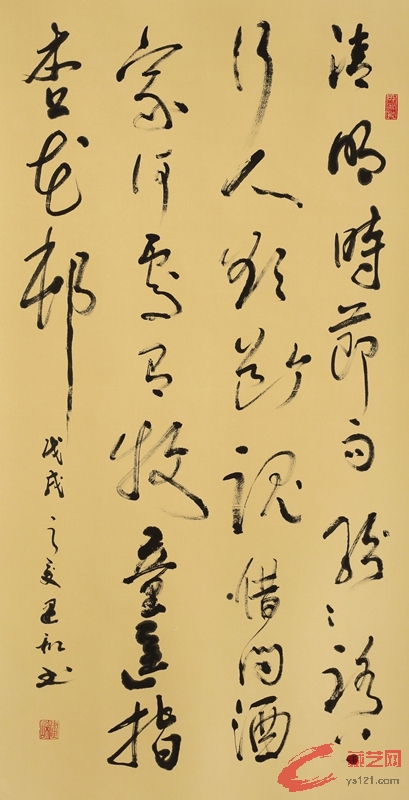 清明時節雨紛〻路上
行人欲斷魂借問酒
家何處有牧童遥指
杏花邨
戊戌之夏建书
艺网
ys121.com